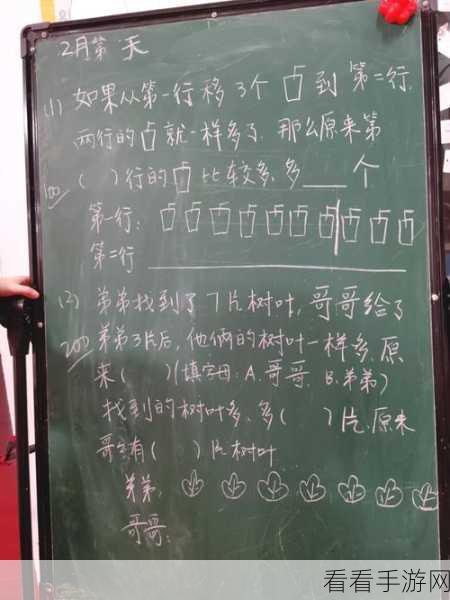 2月第 天
(1) 如果从第一行移3个 到第二行,
两行的 就一样多了. 那么原来第
100 ( )行的 比较多,多____个
第一行:
第二行
(2) 弟弟找到了7片树叶, 哥哥给了
200 弟弟3片后, 他俩的树叶一样多. 原
来( )(填字母: A.哥哥. B.弟弟)
找到的树叶多. 多( )片. 原来
哥哥有( )片树叶
弟弟:
哥哥:
看看手游网